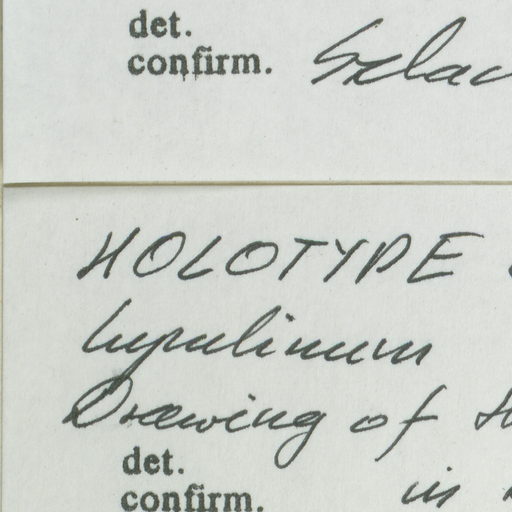 det.
confirm.
HOLOTYPE
lupulinum
Drawing of
det.
confirm. in